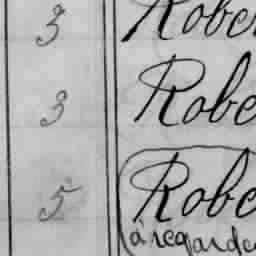 3 Rober
3 Robe
5 Robe
à regarde